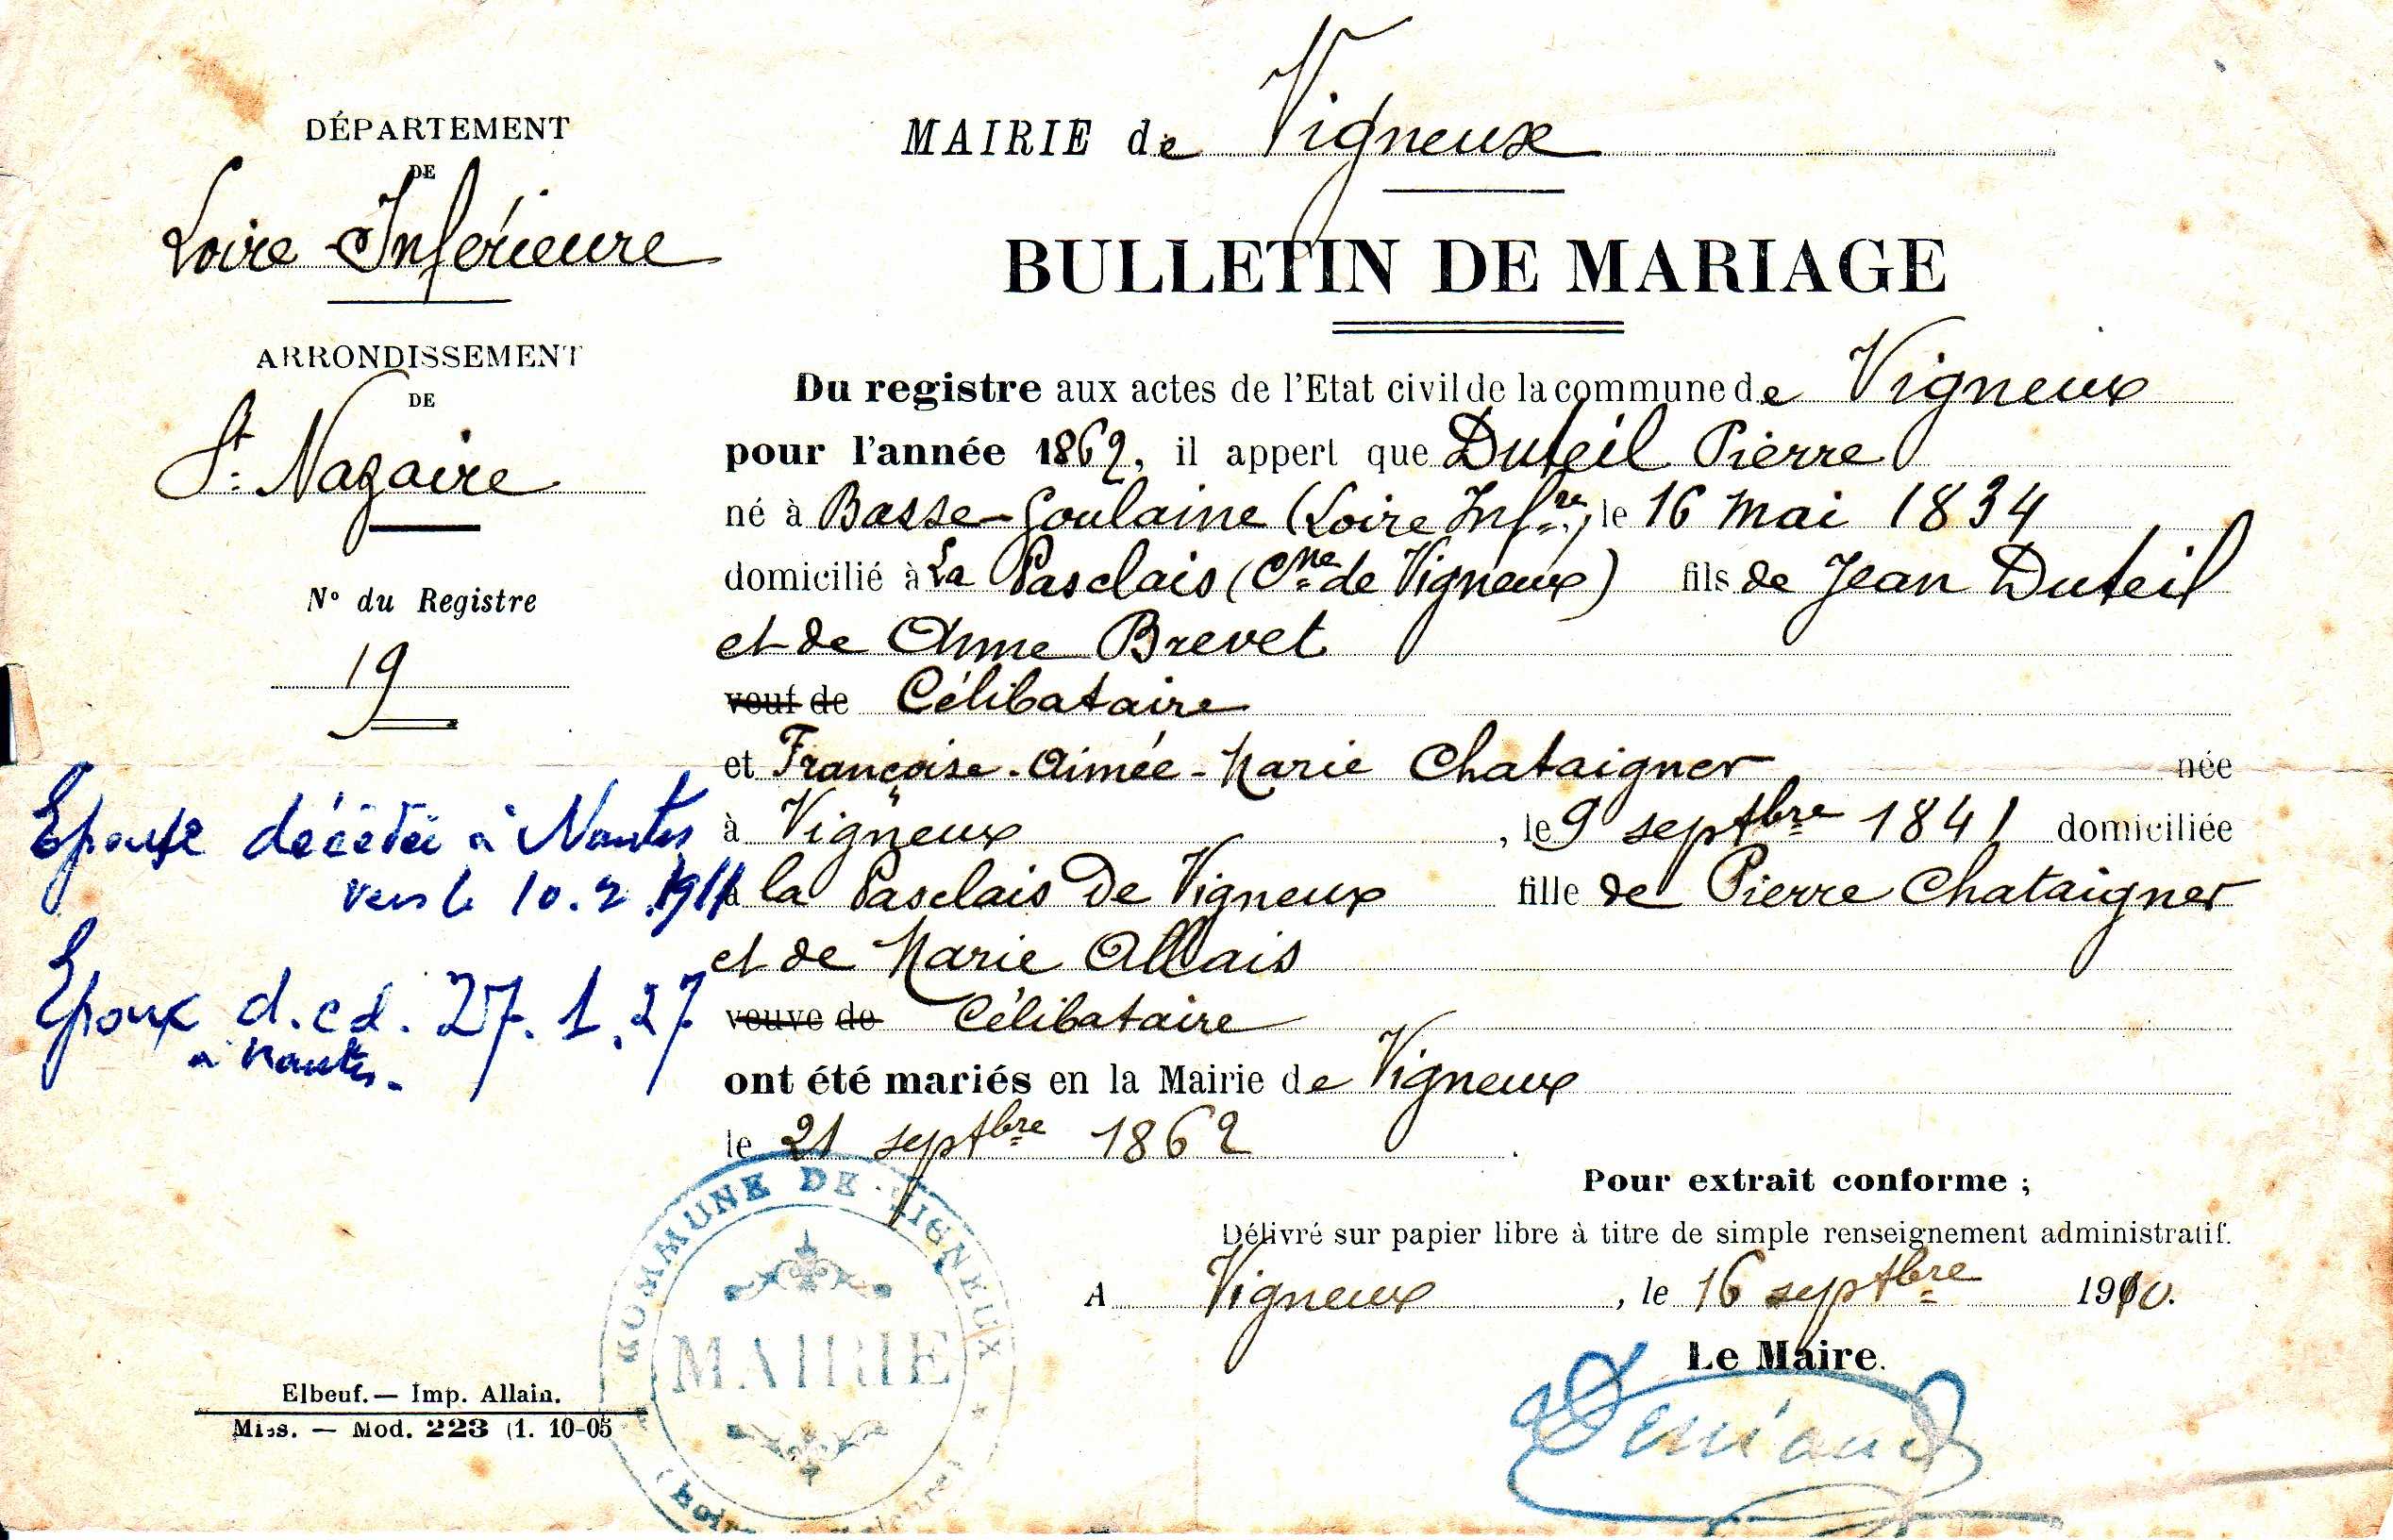 DÉPARTEMENT
DE
Loire-Inférieure
ARRONDISSEMENT
DE
St. Nazaire
N° du Registre
19
Epouse décédée à Nantes
vers le 10.2.1911
Epoux d.c.d. 27.1.27
à Nantes.
Elbeuf. — Imp. Allain.
Miss. — Mod. 223 (1. 10-05
MAIRIE de Vigneux
BULLETIN DE MARIAGE
Du registre aux actes de l'Etat civil de la commune de Vigneux
pour l'année 1862, il appert que Duteil Pierre
né à Basse-Goulaine (Loire Infre), le 16 Mai 1834
domicilié à La Pasclais (Cne de Vigneux) fils de Jean Duteil
et de Anne Brevet
veuf de Célibataire
et Françoise-Aimée-Marie Chataigner née
à Vigneux, le 9 septbre 1841 domiciliée
à la Pasclais de Vigneux fille de Pierre Chataigner
et de Marie Allais
veuve de Célibataire
ont été mariés en la Mairie de Vigneux
le 21 septbre 1862.
Pour extrait conforme ;
Délivré sur papier libre à titre de simple renseignement administratif.
A Vigneux, le 16 septbre 1910.
Le Maire.
COMMUNE DE VIGNEUX
MAIRIE